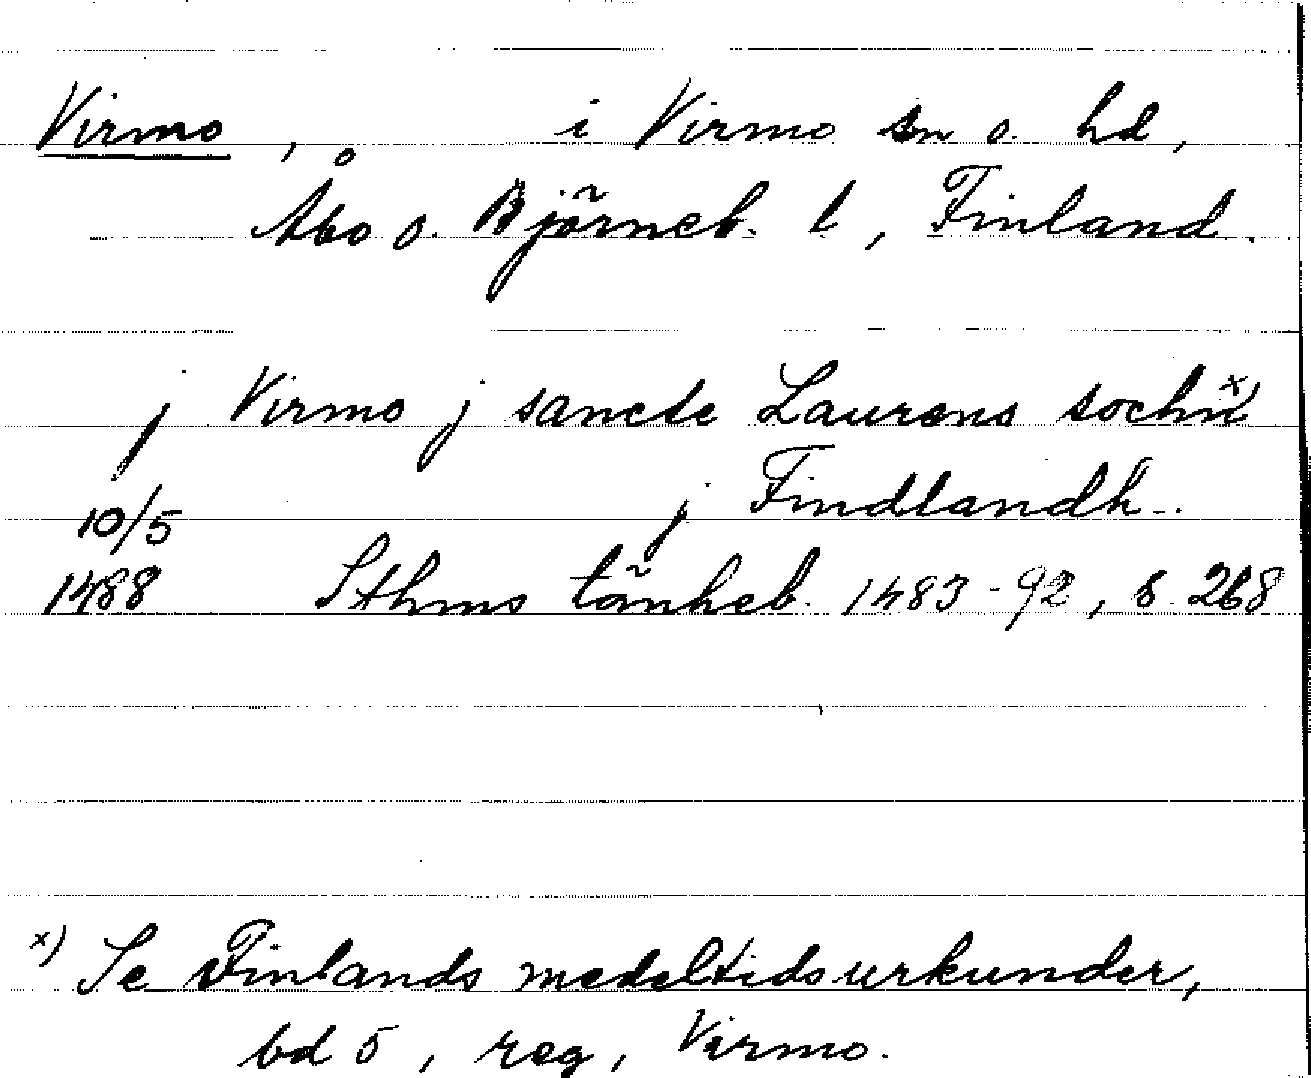 Virmo, i Virmo sn o. hd,
Åbo o. Björneb. l, Finland.
j Virmo j sancte Laurens sochn x)
j Findlandh..
10/5
1488 Sthms tänkeb. 1483-92, s. 268
x) Se Finlands medeltidsurkunder,
bd 5, reg, Virmo.